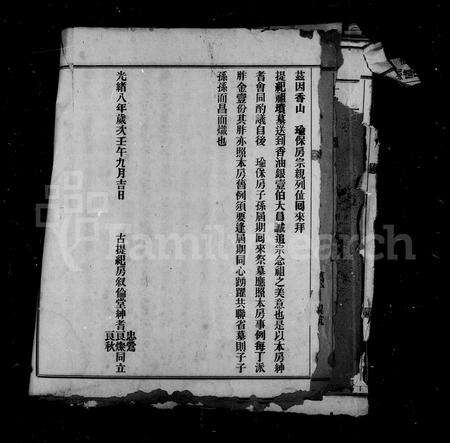 茲因香山　瑜保房宗親列位回來拜
提祀祖墳墓送到香油銀壹伯大員誠追宗念祖之美意也是以本房紳
者會同酌議自後　瑜保房子孫屆期回來祭墓應照本房事例每丁派
胙金壹份其胙亦照本房舊例須要逢屆期同心踴躍共聯省墓則子子
孫孫而昌而熾也
光緒八年歲次壬午九月吉日　古提祀房叙倫堂紳耆
忠
良燦同立
良秋
FamilySearch